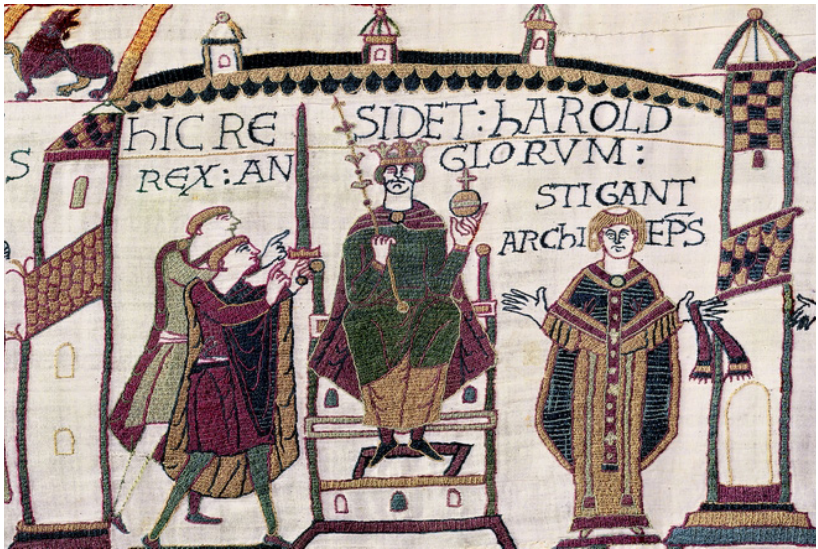 hIC RE SIDET : hAROLD
S
REX : AN GLORVM :
STIGANT
ARChI EP̄S